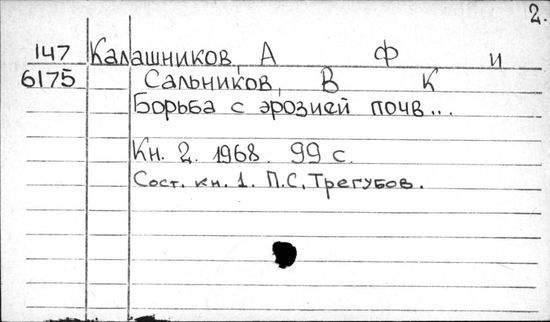 2.
147 Калашников, А Ф и
6175 Сальников, В К
Борьба с эрозией почв...
Кн. 2. 1968. 99 с.
Сост. кн. 1. П.С. Трегубов.